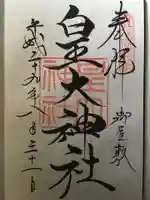 奉拝
御屋敷
皇大神社
平成二十九年一月三十一日